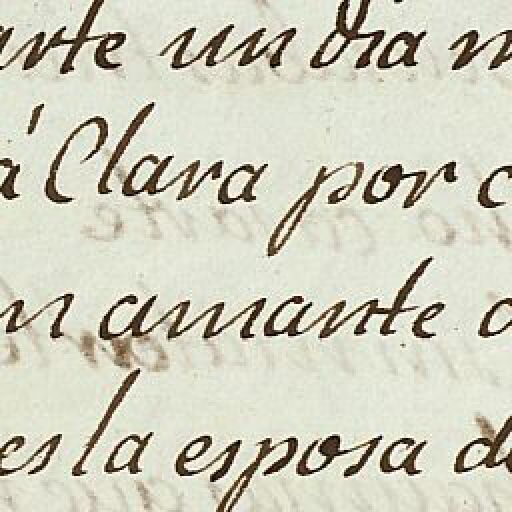 arte un dia m
á Clara por c
n amante
es la esposa de